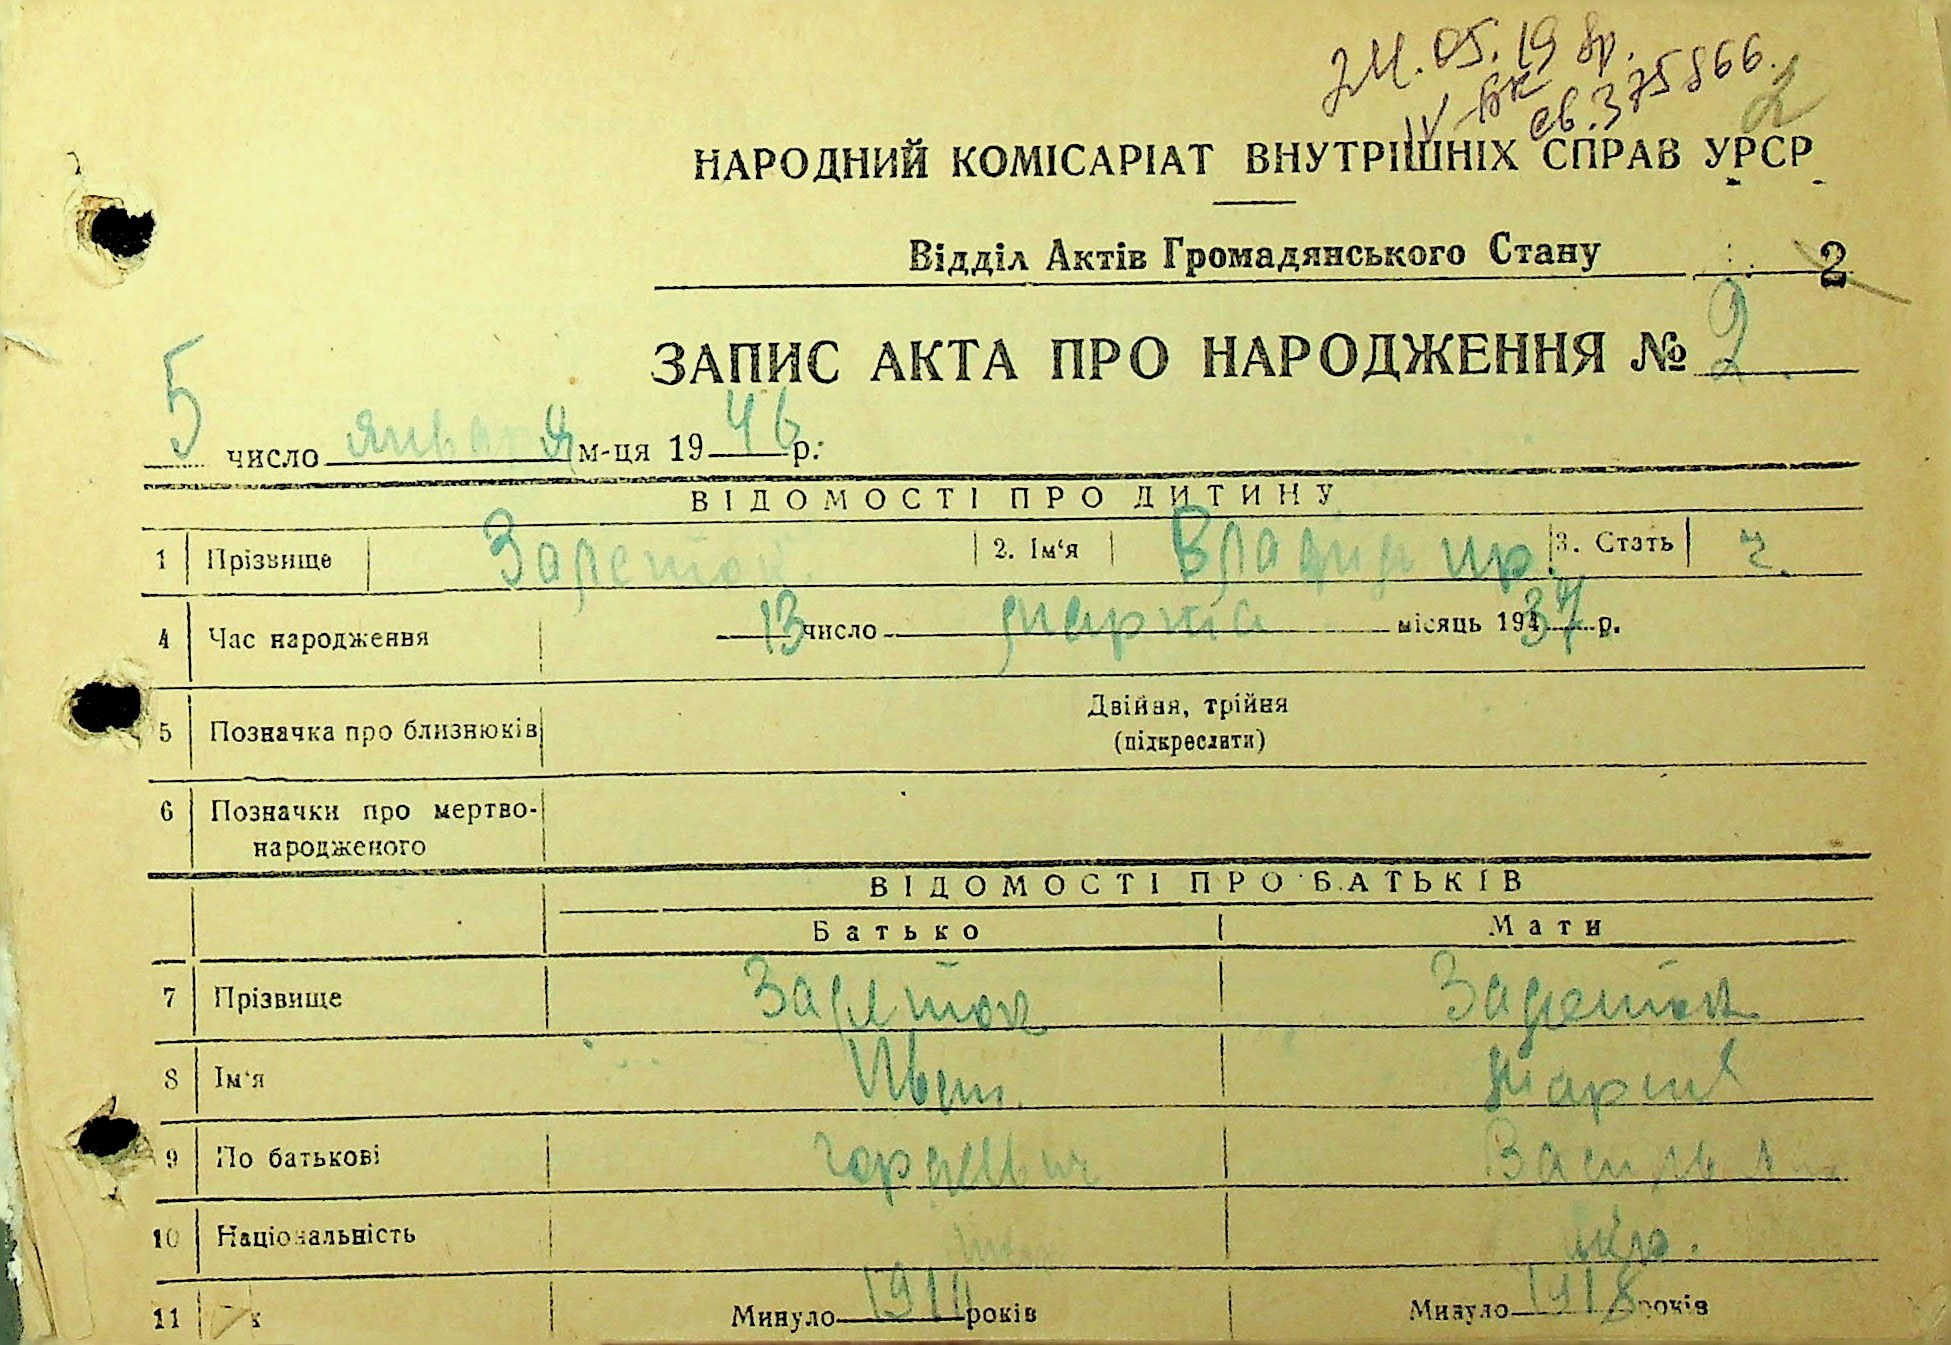 24.05.19 8р.
IV-БК св. 375866.
2
НАРОДНИЙ КОМІСАРІАТ ВНУТРІШНІХ СПРАВ УРСР
Відділ Актів Громадянського Стану
2
ЗАПИС АКТА ПРО НАРОДЖЕННЯ № 2
5 число января м-ця 1946 р.
ВІДОМОСТІ ПРО ДИТИНУ
1 Прізвище 2. Ім'я Владимир 3. Стать ч.
4 Час народження 13 число марта місяць 194 37 р.
5 Позначка про близнюків Двійня, трійня
(підкреслити)
6 Позначки про мертво-
народженого
ВІДОМОСТІ ПРО БАТЬКІВ
Батько Мати
7 Прізвище
8 Ім'я Иван Мария
9 По батькові Гордеевич Васильевна
10 Національність укр.
11 Минуло років Минуло 1918 років